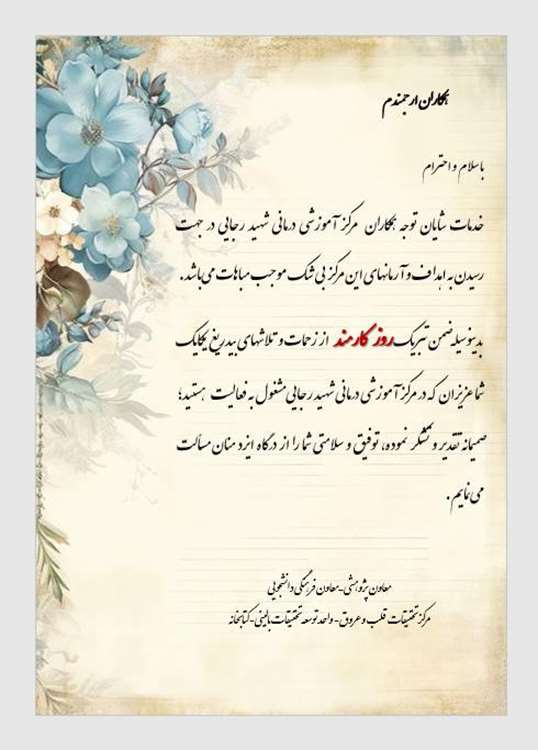 همکاران ارجمندم
باسلام و احترام
خدمات شایان توجه همکاران مرکز آموزشی درمانی شهید رجایی در جهت
رسیدن به اهداف و آرمانهای این مرکز بی شک موجب مباهات می باشد.
بدینوسیله ضمن تبریک روز کارمند از زحمات و تلاشهای بیدریغ یکایک
شما عزیزان که در مرکز آموزشی درمانی شهید رجایی مشغول به فعالیت هستید؛
صمیمانه تقدیر و تشکر نموده، توفیق و سلامتی شما را از درگاه ایزد منان مسألت
می نمایم.
معاون پژوهشی-معاون فرهنگی دانشجویی
مرکز تحقیقات قلب و عروق- واحد توسعه تحقیقات بالینی-کتابخانه